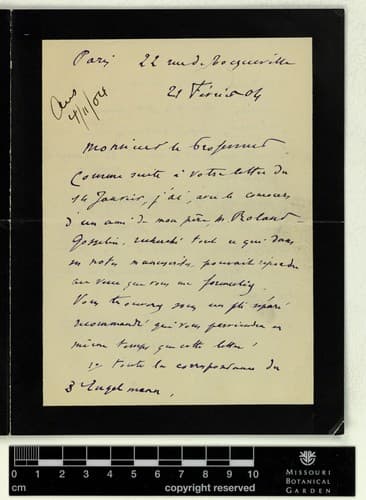 Paris 22 rue de Tocqueville
21 Février 04
Ans
4/11/04
Monsieur le Professeur
Comme suite à votre lettre du
14 Janvier, j'ai, avec le concours
d'un ami de mon père, M. Roland
Gosselin, recherché tout ce qui dans
ses notes manuscrites pouvait répondre
au vœu que vous me formulez.
Vous trouverez sous un pli séparé
recommandé qui vous parviendra en
même temps que cette lettre:
1° toute la correspondance du
Engelmann,
0 1 2 3 4 5 6 7 8 9 10
cm
copyright reserved
MISSOURI
BOTANICAL
GARDEN